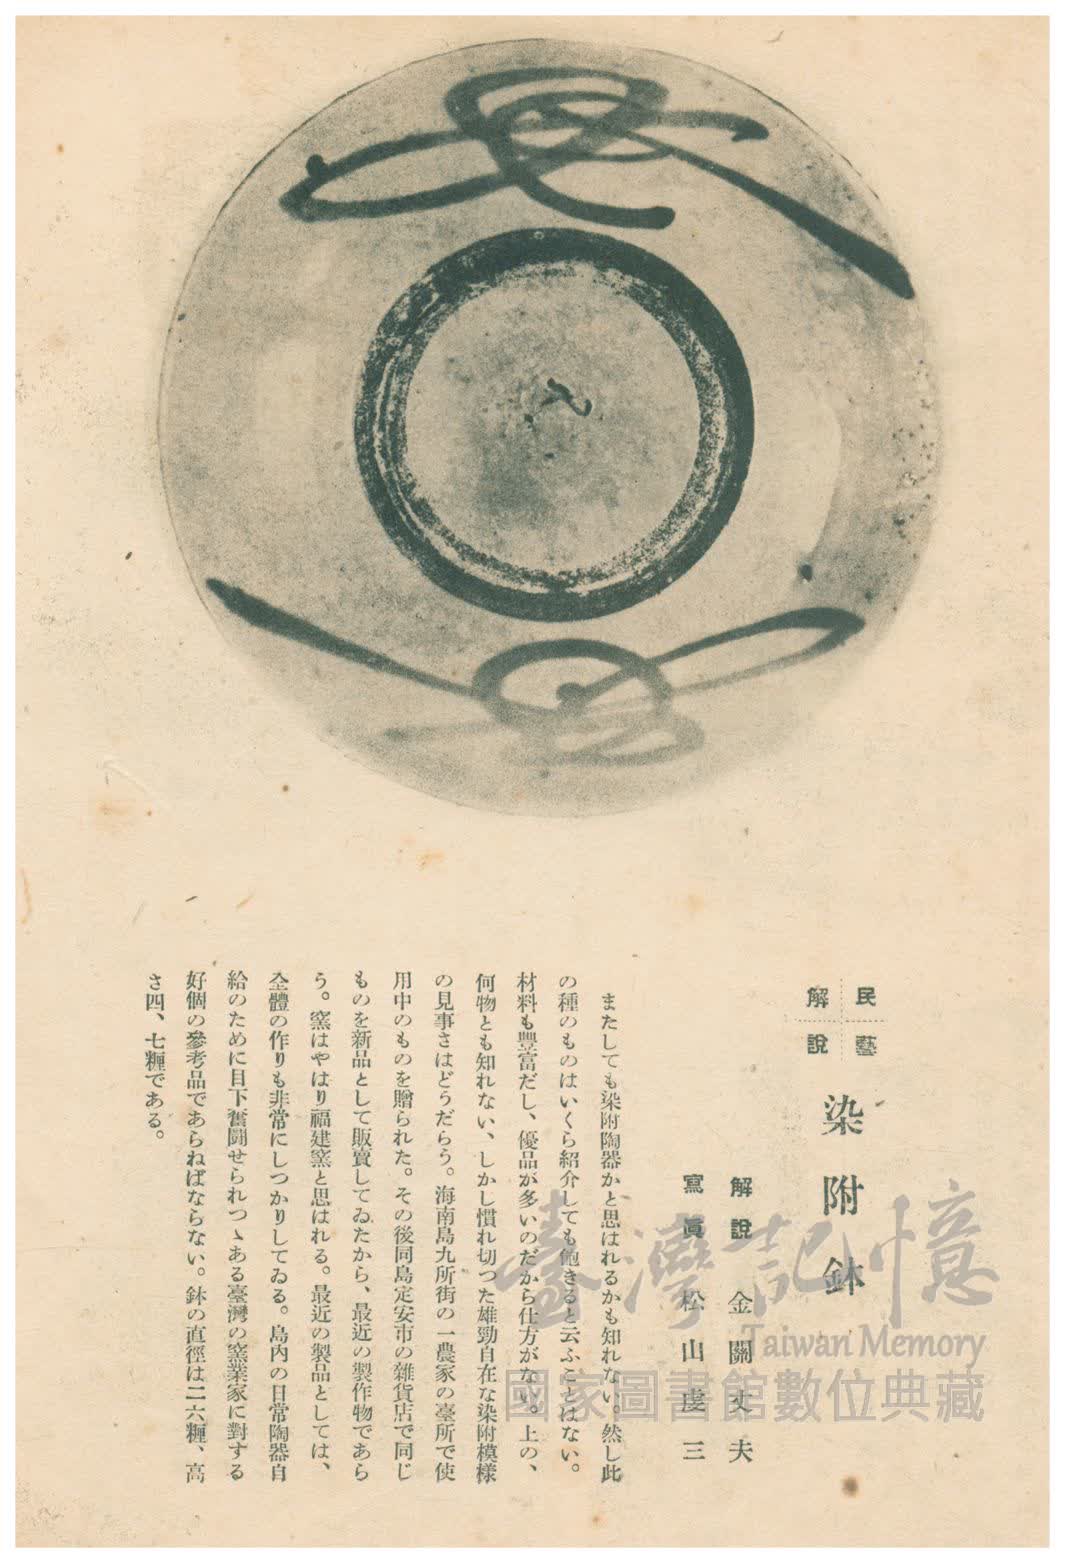 民藝
解說
染附鉢
解說 金關丈夫
寫眞 松山虔三
またしても染附陶器かと思はれるかも知れない。然し此
の種のものはいくら紹介しても飽きると云ふことはない。
材料も豐富だし、優品が多いのだから仕方がない。上の、
何物とも知れない、しかし慣れ切つた雄勁自在な染附模樣
の見事さはどうだらう。海南島九所街の一農家の臺所で使
用中のものを贈られた。その後同島定安市の雜貨店で同じ
ものを新品として販賣してゐたから、最近の製作物であら
う。窯はやはり福建窯と思はれる。最近の製品としては、
全體の作りも非常にしつかりしてゐる。島内の日常陶器自
給のために目下奮鬪せられつゝある臺灣の窯業家に對する
好個の參考品であらねばならない。鉢の直徑は二六糎、高
さ四、七糎である。
臺灣記憶
Taiwan Memory
國家圖書館數位典藏